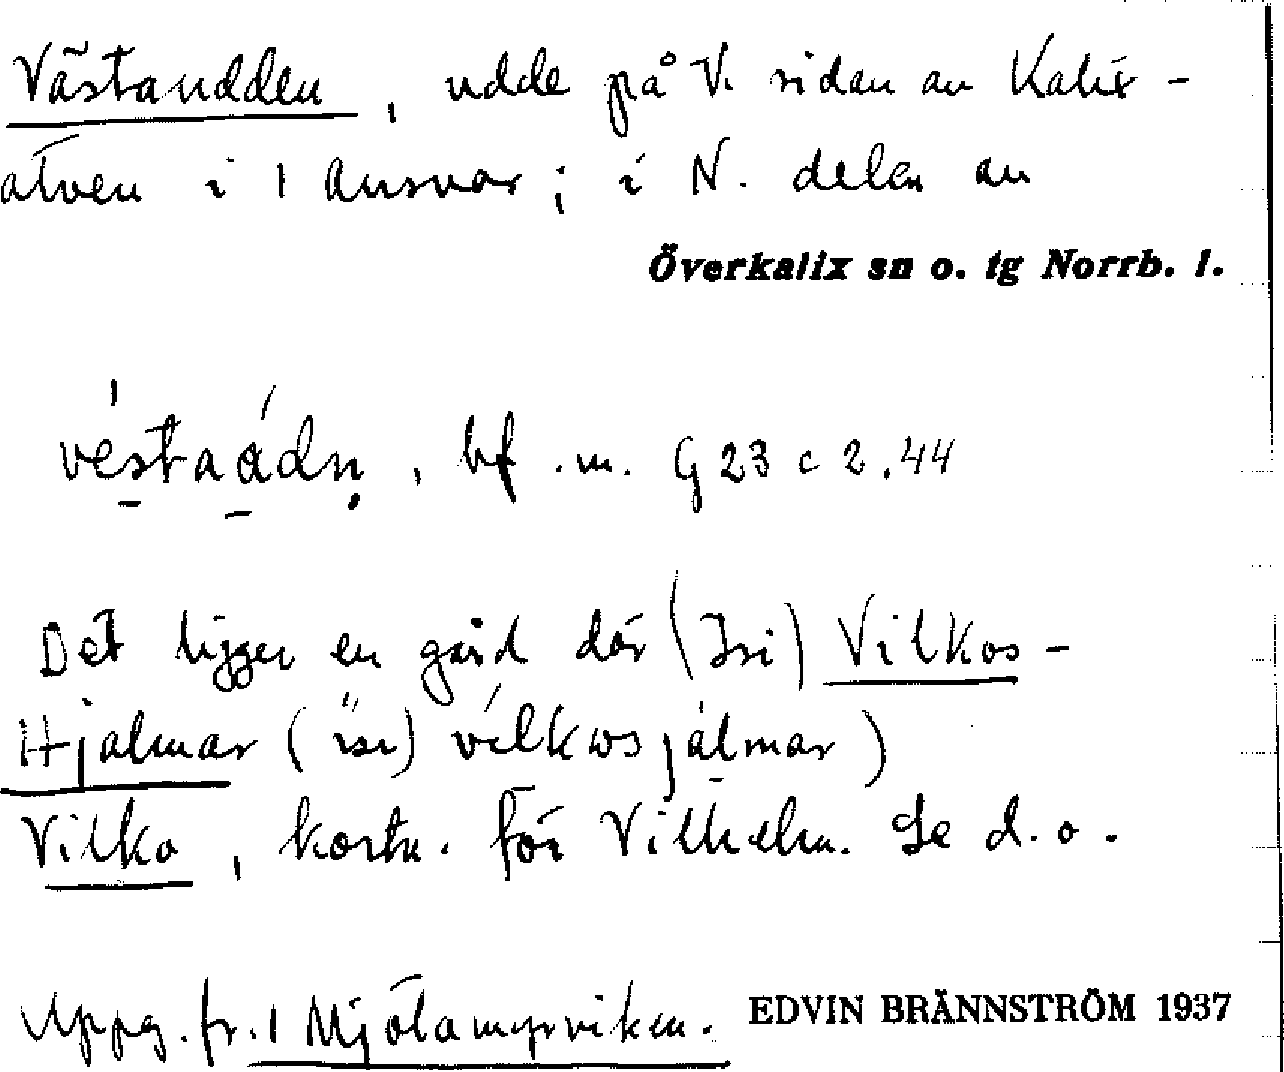 Västanudden, udde på V. sidan av Kalix-
älven i 1 Ansvar; i N. delen av
Överkalix sn o. tg Norrb. l.
véstaádn̥, bf. m. G 23 c 2.44
Det ligger en gård där (Isi) Vilkos-
Hjalmar ( isi) vilkos jálmar )
Vilko, kortn. för Vilhelm. Se d.o.
Uppg. fr. 1 Mjölamyrviken. EDVIN BRÄNNSTRÖM 1937